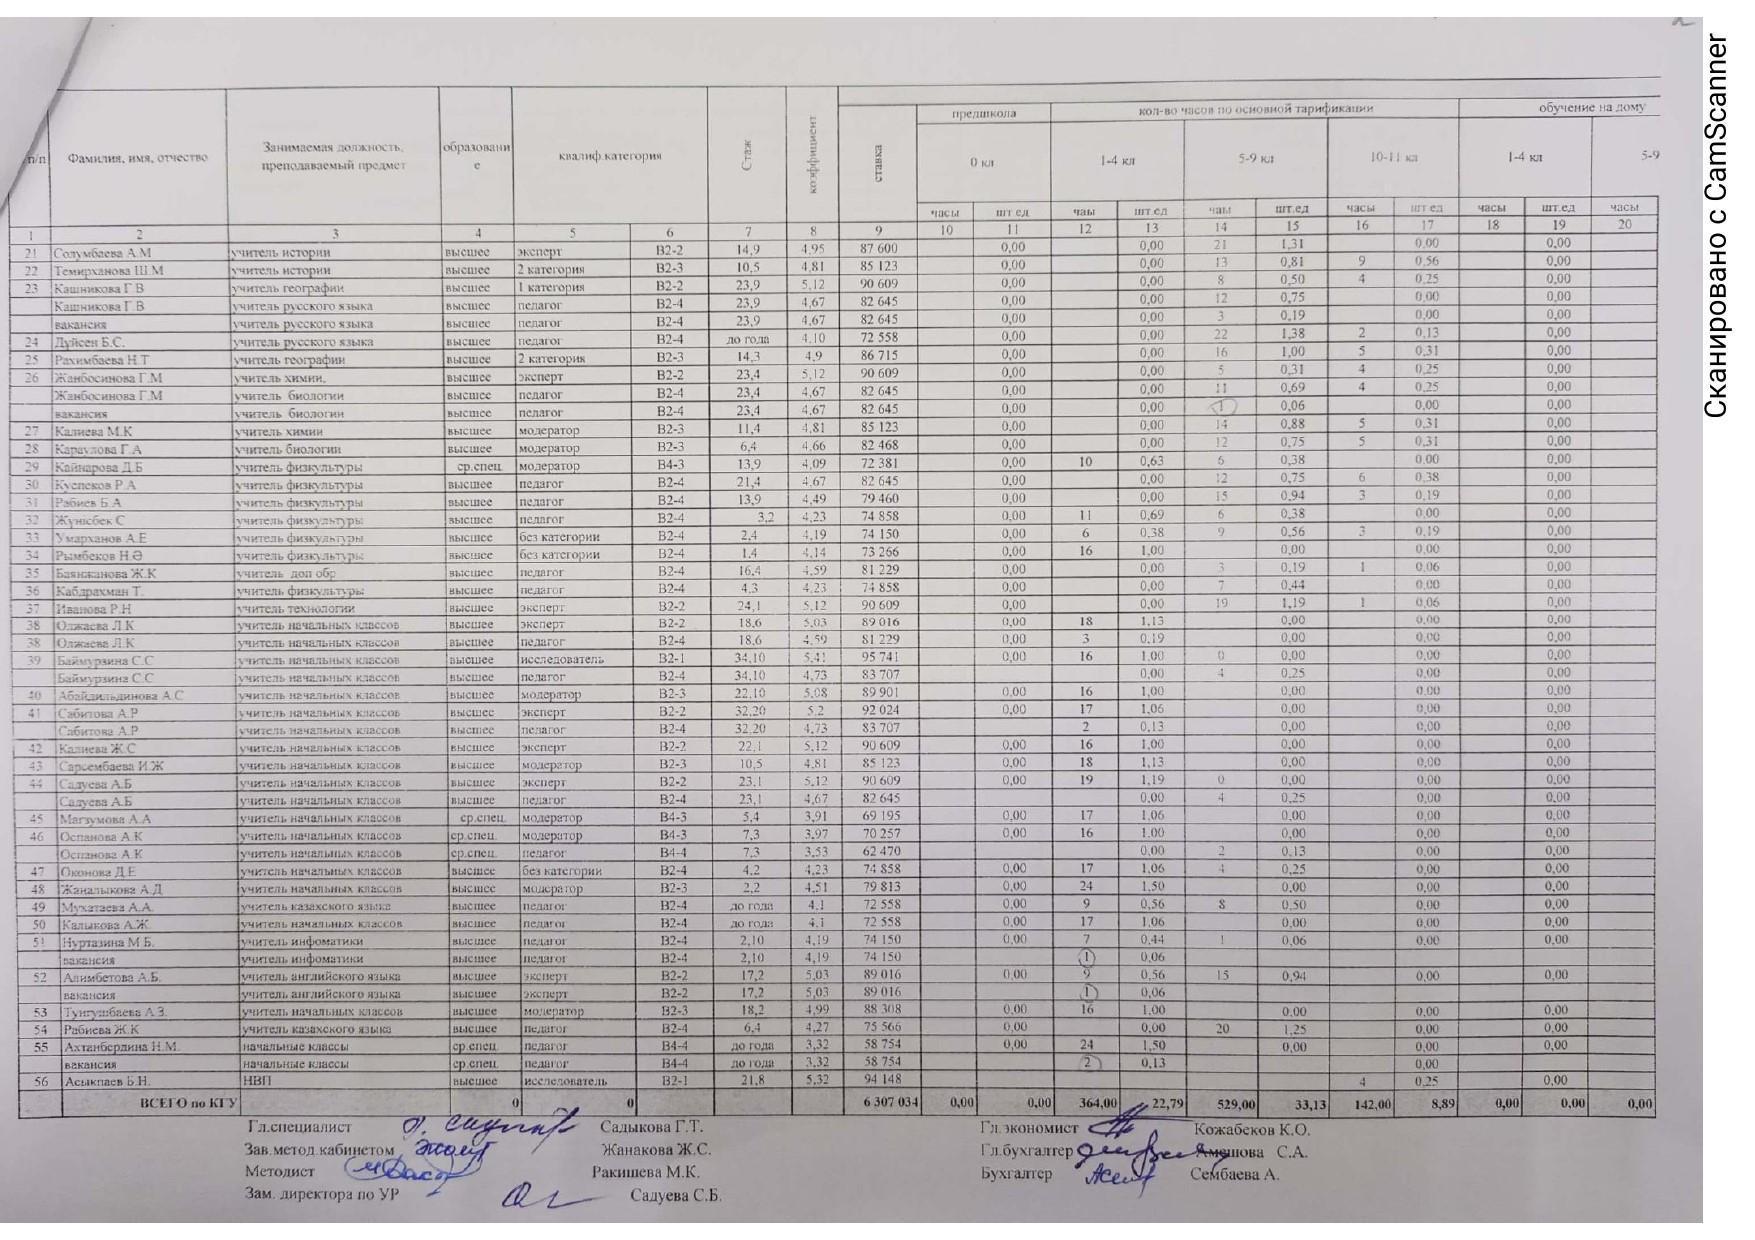 Сканировано с CamScanner
п/п Фамилия, имя, отчество Занимаемая должность, преподаваемый предмет образование квалиф.категория Стаж коэффициент ставка предшкола кол-во часов по основной тарификации обучение на дому
0 кл 1-4 кл 5-9 кл 10-11 кл 1-4 кл 5-9
часы шт.ед чаы шт.ед чаы шт.ед часы шт.ед часы шт.ед часы
1 2 3 4 5 6 7 8 9 10 11 12 13 14 15 16 17 18 19 20
21 Солумбаева А.М учитель истории высшее эксперт В2-2 14,9 4,95 87 600 0,00 0,00 21 1,31 0,00 0,00
22 Темирханова Ш.М учитель истории высшее 2 категория В2-3 10,5 4,81 85 123 0,00 0,00 13 0,81 9 0,56 0,00
23 Кашникова Г.В учитель географии высшее 1 категория В2-2 23,9 5,12 90 609 0,00 0,00 8 0,50 4 0,25 0,00
Кашникова Г.В учитель русского языка высшее педагог В2-4 23,9 4,67 82 645 0,00 0,00 12 0,75 0,00 0,00
вакансия учитель русского языка высшее педагог В2-4 23,9 4,67 82 645 0,00 0,00 3 0,19 0,00 0,00
24 Дуйсен Б.С. учитель русского языка высшее педагог В2-4 до года 4,10 72 558 0,00 0,00 22 1,38 2 0,13 0,00
25 Рахимбаева Н.Т учитель географии высшее 2 категория В2-3 14,3 4,9 86 715 0,00 0,00 16 1,00 5 0,31 0,00
26 Жанбосинова Г.М учитель химии, высшее эксперт В2-2 23,4 5,12 90 609 0,00 0,00 5 0,31 4 0,25 0,00
Жанбосинова Г.М учитель биологии высшее педагог В2-4 23,4 4,67 82 645 0,00 0,00 11 0,69 4 0,25 0,00
вакансия учитель биологии высшее педагог В2-4 23,4 4,67 82 645 0,00 0,00 1 0,06 0,00 0,00
27 Калиева М.К учитель химии высшее модератор В2-3 11,4 4,81 85 123 0,00 0,00 14 0,88 5 0,31 0,00
28 Караулова Г.А учитель биологии высшее модератор В2-3 6,4 4,66 82 468 0,00 0,00 12 0,75 5 0,31 0,00
29 Кайнарова Д.Б учитель физкультуры ср.спец. модератор В4-3 13,9 4,09 72 381 0,00 10 0,63 6 0,38 0,00 0,00
30 Куспеков Р.А учитель физкультуры высшее педагог В2-4 21,4 4,67 82 645 0,00 0,00 12 0,75 6 0,38 0,00
31 Рабиев Б.А учитель физкультуры высшее педагог В2-4 13,9 4,49 79 460 0,00 0,00 15 0,94 3 0,19 0,00
32 Жунісбек С учитель физкультуры высшее педагог В2-4 3,2 4,23 74 858 0,00 11 0,69 6 0,38 0,00 0,00
33 Умарханов А.Е учитель физкультуры высшее без категории В2-4 2,4 4,19 74 150 0,00 6 0,38 9 0,56 3 0,19 0,00
34 Рымбеков Н.Ә учитель физкультуры высшее без категории В2-4 1,4 4,14 73 266 0,00 16 1,00 0,00 0,00 0,00
35 Баянжанова Ж.К учитель доп обр высшее педагог В2-4 16,4 4,59 81 229 0,00 0,00 3 0,19 1 0,06 0,00
36 Кабдрахман Т. учитель физкультуры высшее педагог В2-4 4,3 4,23 74 858 0,00 0,00 7 0,44 0,00 0,00
37 Иванова Р.Н учитель технологии высшее эксперт В2-2 24,1 5,12 90 609 0,00 0,00 19 1,19 1 0,06 0,00
38 Олжаева Л.К учитель начальных классов высшее эксперт В2-2 18,6 5,03 89 016 0,00 18 1,13 0,00 0,00 0,00
38 Олжаева Л.К учитель начальных классов высшее педагог В2-4 18,6 4,59 81 229 0,00 3 0,19 0,00 0,00 0,00
39 Баймурзина С.С учитель начальных классов высшее исследователь В2-1 34,10 5,41 95 741 0,00 16 1,00 0 0,00 0,00 0,00
Баймурзина С.С учитель начальных классов высшее педагог В2-4 34,10 4,73 83 707 0,00 4 0,25 0,00 0,00
40 Абайдильдинова А.С учитель начальных классов высшее модератор В2-3 22,10 5,08 89 901 0,00 16 1,00 0,00 0,00 0,00
41 Сабитова А.Р учитель начальных классов высшее эксперт В2-2 32,20 5,2 92 024 0,00 17 1,06 0,00 0,00 0,00
Сабитова А.Р учитель начальных классов высшее педагог В2-4 32,20 4,73 83 707 2 0,13 0,00 0,00 0,00
42 Калиева Ж.С учитель начальных классов высшее эксперт В2-2 22,1 5,12 90 609 0,00 16 1,00 0,00 0,00 0,00
43 Сарсембаева И.Ж учитель начальных классов высшее модератор В2-3 10,5 4,81 85 123 0,00 18 1,13 0,00 0,00 0,00
44 Садуева А.Б учитель начальных классов высшее эксперт В2-2 23,1 5,12 90 609 0,00 19 1,19 0 0,00 0,00 0,00
Садуева А.Б учитель начальных классов высшее педагог В2-4 23,1 4,67 82 645 0,00 4 0,25 0,00 0,00
45 Магзумова А.А учитель начальных классов ср.спец. модератор В4-3 5,4 3,91 69 195 0,00 17 1,06 0,00 0,00 0,00
46 Оспанова А.К учитель начальных классов ср.спец. модератор В4-3 7,3 3,97 70 257 0,00 16 1,00 0,00 0,00 0,00
Оспанова А.К учитель начальных классов ср.спец. педагог В4-4 7,3 3,53 62 470 0,00 2 0,13 0,00 0,00
47 Оконова Д.Е учитель начальных классов высшее без категории В2-4 4,2 4,23 74 858 0,00 17 1,06 4 0,25 0,00 0,00
48 Жаналыкова А.Д учитель начальных классов высшее модератор В2-3 2,2 4,51 79 813 0,00 24 1,50 0,00 0,00 0,00
49 Мухатаева А.А. учитель казахского языка высшее педагог В2-4 до года 4,1 72 558 0,00 9 0,56 8 0,50 0,00 0,00
50 Калыкова А.Ж. учитель начальных классов высшее педагог В2-4 до года 4,1 72 558 0,00 17 1,06 0,00 0,00 0,00
51 Нуртазина М.Б. учитель инфоматики высшее педагог В2-4 2,10 4,19 74 150 0,00 7 0,44 1 0,06 0,00 0,00
вакансия учитель инфоматики высшее педагог В2-4 2,10 4,19 74 150 1 0,06
52 Алимбетова А.Б. учитель английского языка высшее эксперт В2-2 17,2 5,03 89 016 0,00 9 0,56 15 0,94 0,00 0,00
вакансия учитель английского языка высшее эксперт В2-2 17,2 5,03 89 016 1 0,06
53 Тунгушбаева А.З. учитель начальных классов высшее модератор В2-3 18,2 4,99 88 308 0,00 16 1,00 0,00 0,00 0,00
54 Рабиева Ж.К учитель казахского языка высшее педагог В2-4 6,4 4,27 75 566 0,00 0,00 20 1,25 0,00 0,00
55 Ахтанбердина Н.М. начальные классы ср.спец. педагог В4-4 до года 3,32 58 754 0,00 24 1,50 0,00 0,00 0,00
вакансия начальные классы ср.спец. педагог В4-4 до года 3,32 58 754 2 0,13 0,00
56 Асыкпаев Б.Н. НВП высшее исследователь В2-1 21,8 5,32 94 148 4 0,25 0,00
ВСЕГО по КГУ 0 0 6 307 034 0,00 0,00 364,00 22,79 529,00 33,13 142,00 8,89 0,00 0,00 0,00
Гл.специалист Садыкова Г.Т. Гл.экономист Кожабеков К.О.
Зав.метод.кабинетом Жанакова Ж.С. Гл.бухгалтер Амешова С.А.
Методист Ракишева М.К. Бухгалтер Сембаева А.
Зам. директора по УР Садуева С.Б.